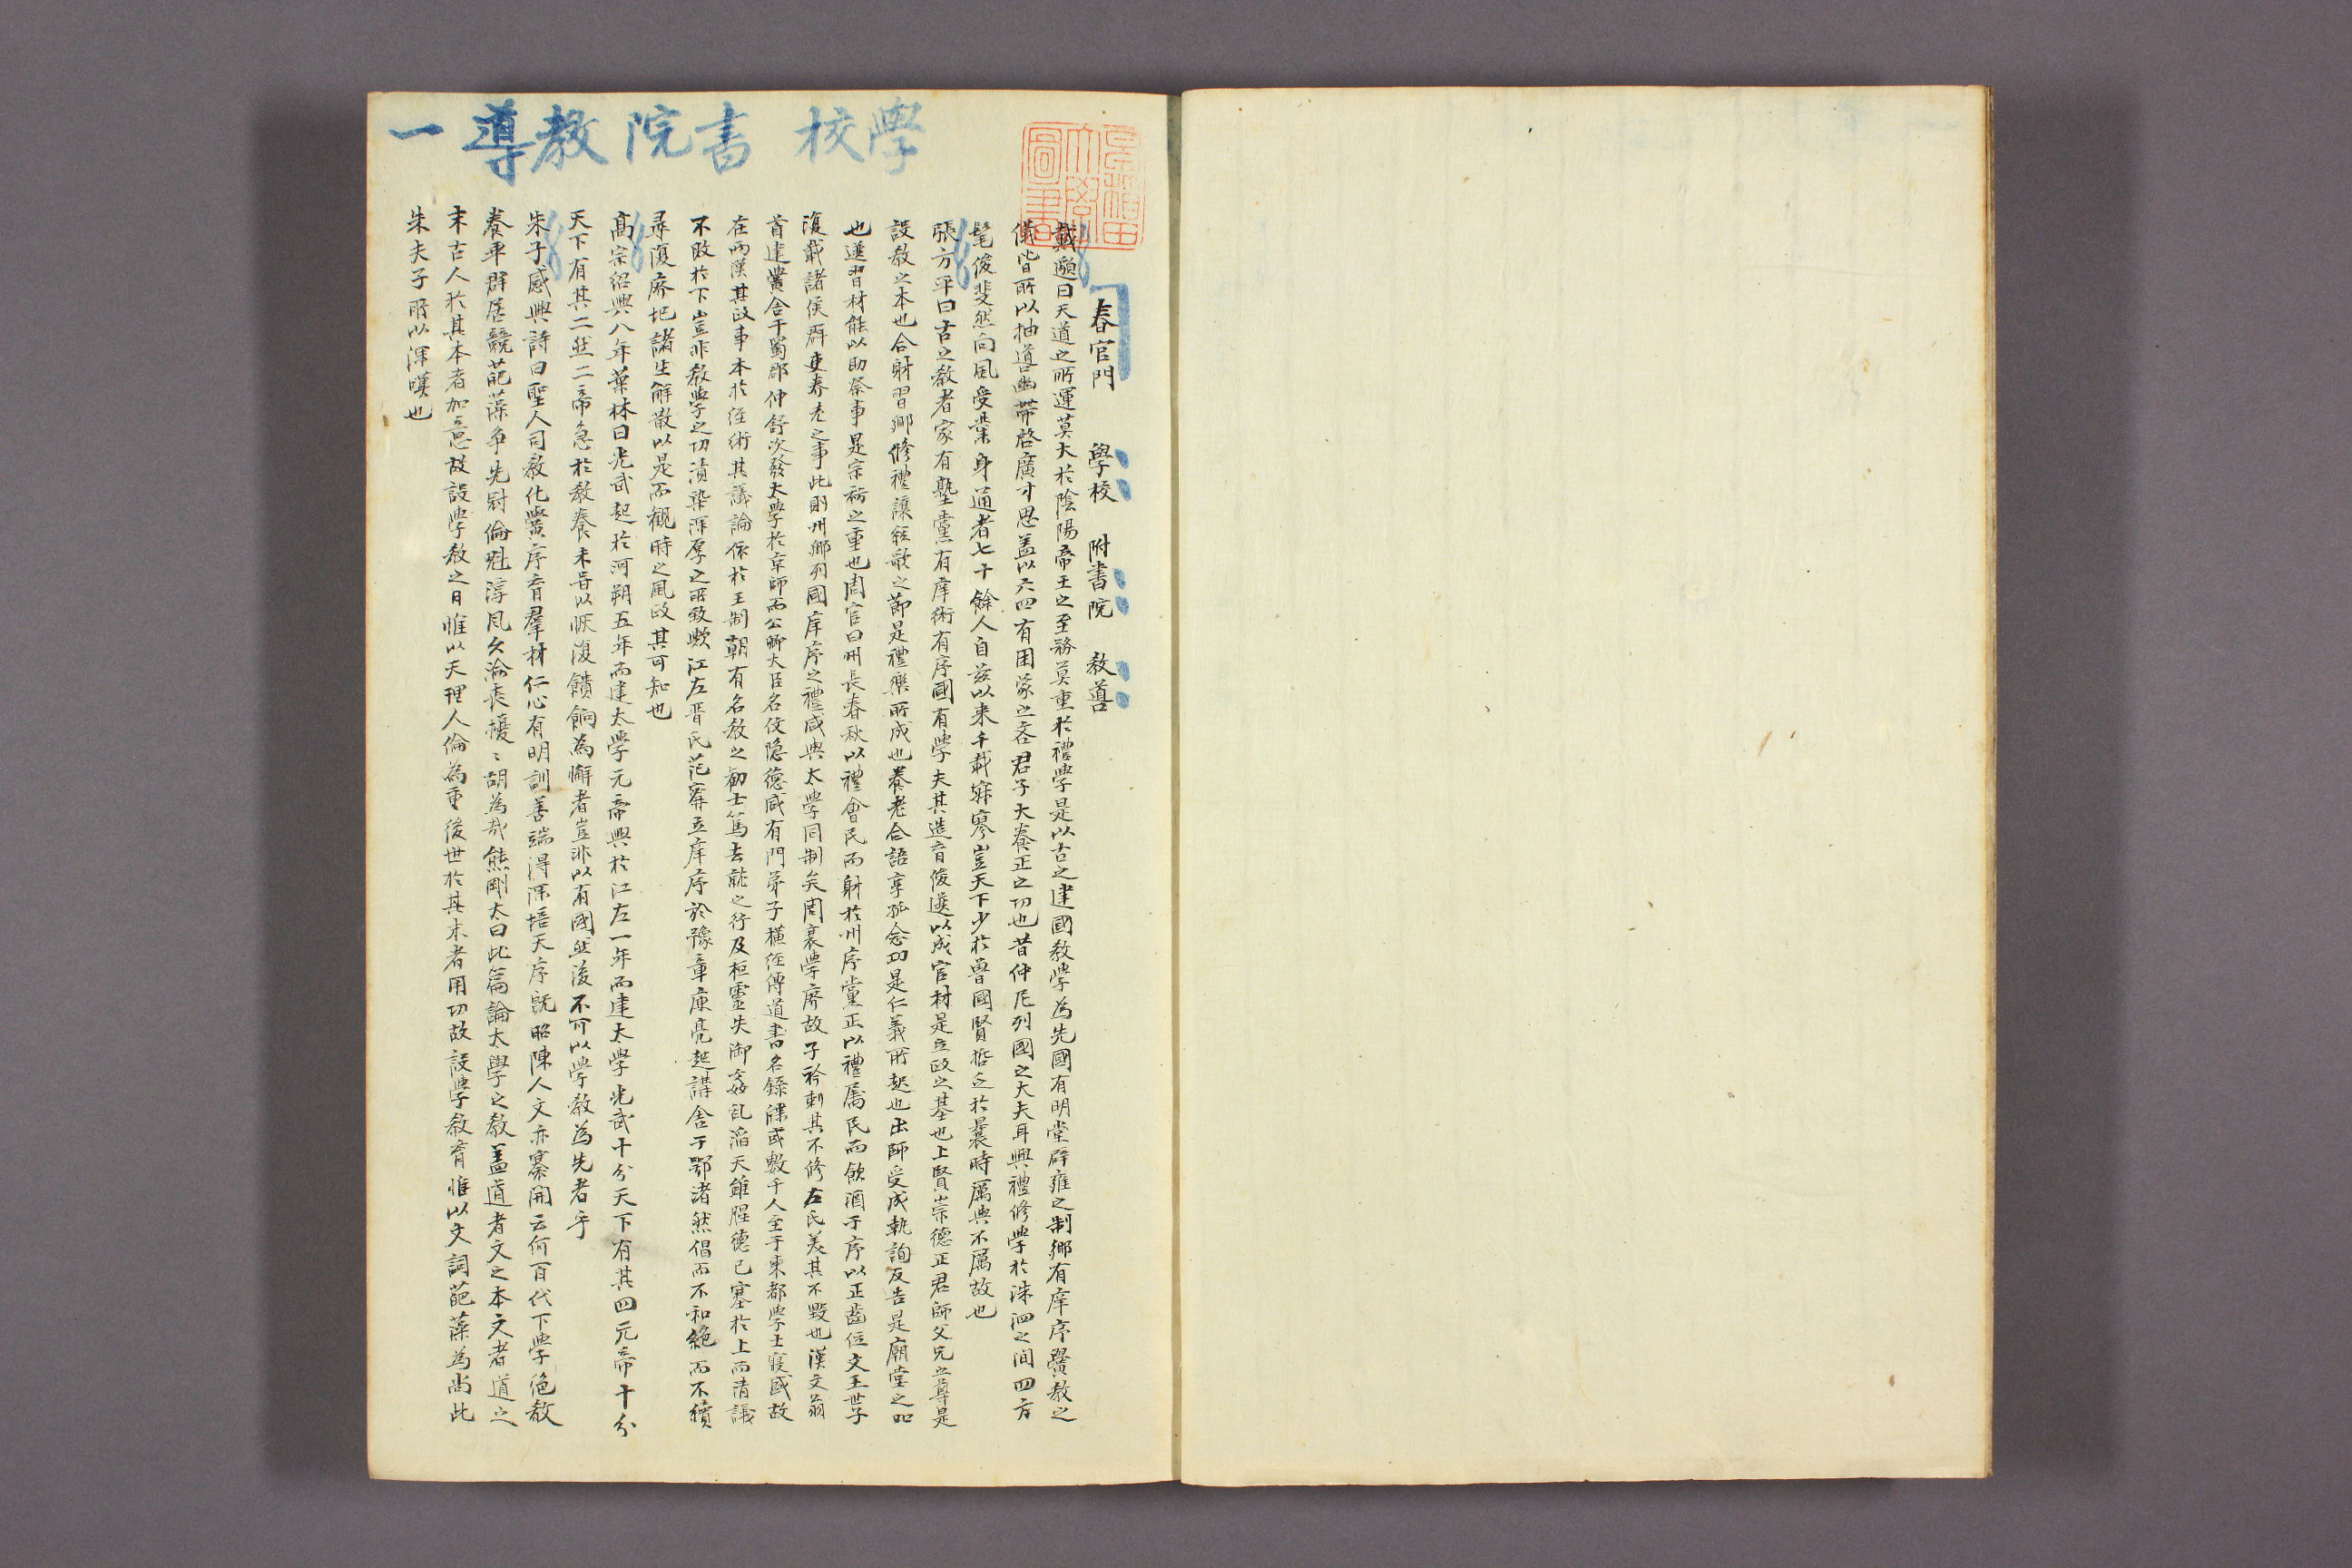 學校 書院教導 一
早稲田大學圖書
春官門 學校 附書院 教導
戴邈曰天道之所運莫大於陰陽帝王之至務莫重於禮學是以古之建國教學為先國有明堂辟雍之制鄉有庠序黌教之
儀皆所以抽導幽滯啓廣才思盖以六四有困蒙之吝君子大養正之功也昔仲尼列國之大夫耳興禮修學於洙泗之间四方
髦俊斐然向風受業身通者七十餘人自茲以来千載寂寥豈天下少於魯國賢哲乏於曩時厲與不厲故也
張方平曰古之教者家有塾黨有庠術有序國有學夫其造育俊選以成官材是立政之基也上賢崇德正君師父兄之尊是
設教之本也合射習鄉修禮讓絃歌之節是禮樂所成也養老合語享孤念功是仁義所起也出師受成執詢反告是廟堂之
也選習材能以助祭事是宗祊之重也周官曰州長春秋以禮會民而射於州序黨正以禮属民而飲酒于序以正齒位文王世子
復載諸侯群吏養老之事此則州鄉列國庠序之禮咸與太學同制矣周衰學廢故子衿刺其不修左氏羙其不毀也漢文翁
首建黌舍于蜀郡仲舒次發太學於京師而公卿大臣名伎隐德咸有門弟子橫经傳道書名錄牒或數千人至于東都學士寖盛故
在兩漢其政事本於经術其議論依於王制朝有名教之勸士篤去就之行及桓靈失御姦乱滔天雖腥德已塞於上而清議
不敗於下豈非教學之功漬染深厚之所致歟江左晋氏范甯立庠序於豫章庾亮起講舍于鄂渚然倡而不和絶而不續
尋復廃圯諸生解散以是而観時之風政其可知也
髙宗绍興八年葉林曰光武起於河朔五年而建太學元帝興於江左一年而建太學光武十分天下有其四元帝十分
天下有其二然二帝急於教養未甞以恢復饋餉為懈者豈非以有國然後不可以學教為先者乎
朱子感興詩曰聖人司教化黌序育羣材仁心有明訓善端得深培天序既昭陳人文亦褰開云何百代下學绝教
養乖群居競葩藻争先冠倫魁淳風久淪丧擾〻胡為哉熊剛大曰此篇論大學之教盖道者文之本文者道之
末古人於其本者加意故設學教之日惟以天理人倫為重後世於其末者用功故設學教育惟以文詞葩藻為尚此
朱夫子所以深嘆也